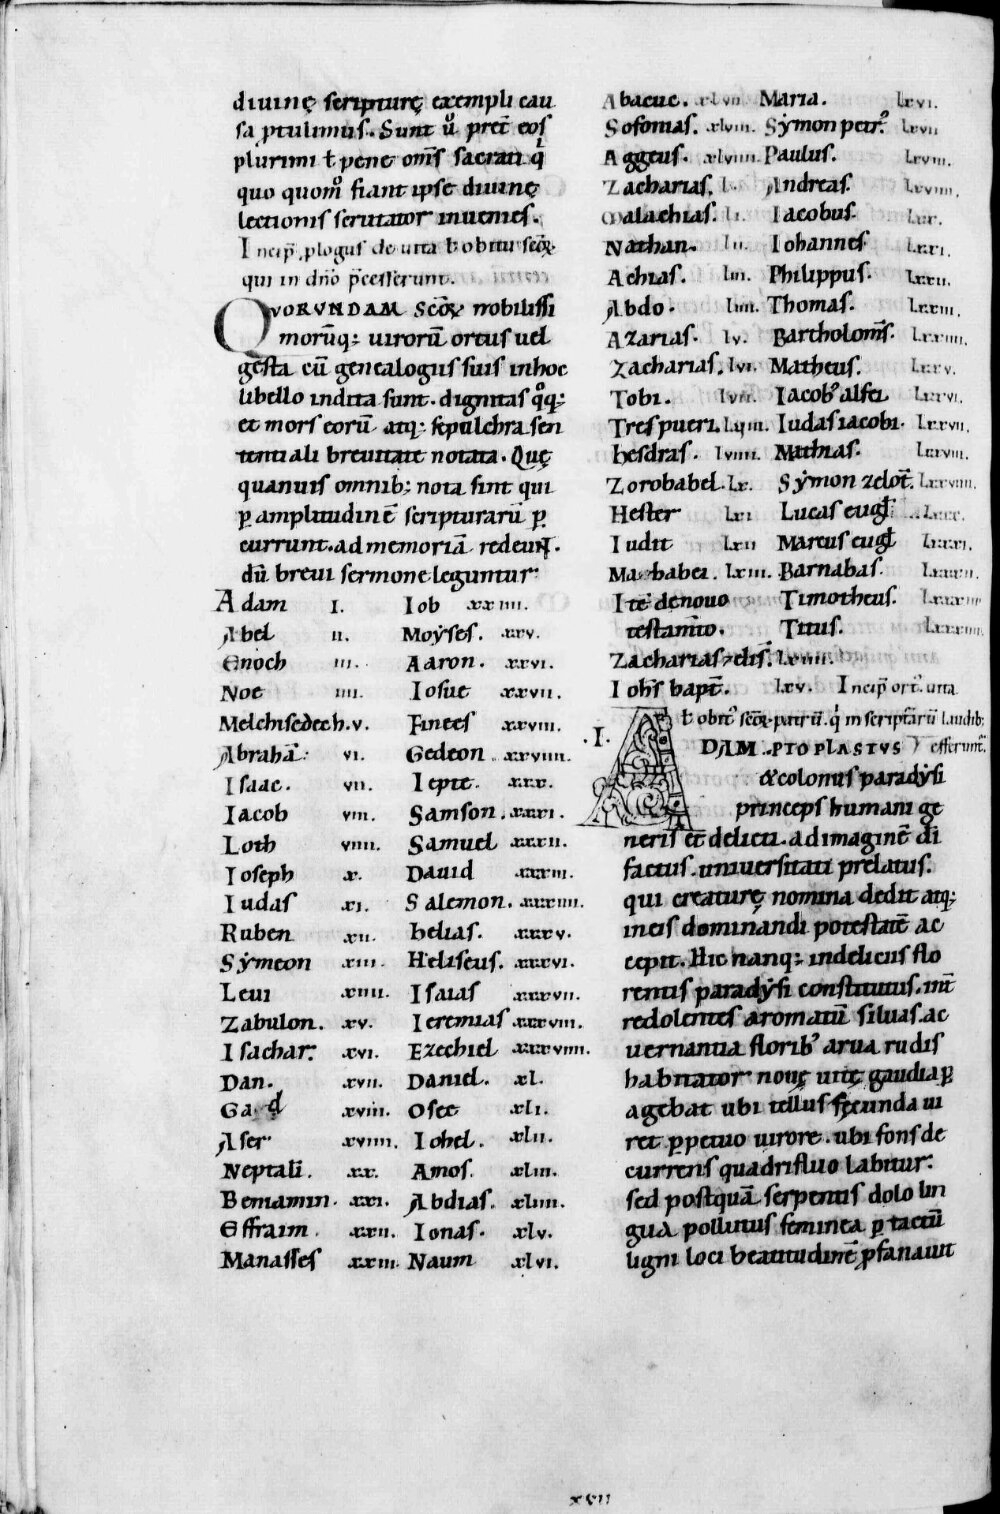 diuinę scripturę exempli cau
sa ptulimus. Sunt ů pret̄ eos
plurimi ł pene om̄s sacrati q̇
quo quom̊ fiant ipse diuinę
lectionis scrutator inuenies.
Incip̄ plogus de uita ł obitu sc̄oꝝ
qui in dn̄o p̄cesserunt.
QVORVNDAM sc̄oꝝ nobilissi
morūq; uirorū ortus uel
gesta cū genealogiis suis in hoc
libello indita sunt. dignitas q̊q;
et mors eorū atq; sepulchra sen
tentiali breuitate notata. Quę
quanuis omnib; nota sint qui
ꝑ amplitudinē scripturarū ꝑ
currunt. ad memoriā redeunt.
dū breui sermone leguntur.
Adam I. Iob xxiiii.
Abel ii. Moẏses. xxv.
Enoch iii. Aaron. xxvi.
Noe iiii. Iosue xxvii.
Melchisedech. v. Finees xxviii.
Abrahā. vi. Gedeon xxviiii.
Isaac. vii. Iepte xxx.
Iacob viii. Samson. xxxi.
Loth viiii. Samuel xxxii.
Ioseph x. Dauid xxxiii.
Iudas xi. Salemon. xxxiiii.
Ruben xii. helias. xxxv.
Sẏmeon xiii. Heliseus. xxxvi.
Leui xiiii. Isaias xxxvii.
Zabulon. xv. Ieremias xxxviii.
Isachar. xvi. Ezechiel xxxviiii.
Dan. xvii. Daniel. xl.
Gad xviii. Osee xli.
Aser xviiii. Iohel. xlii.
Neptali. xx. Amos. xliii.
Beniamin. xxi. Abdias. xliiii.
Effraim xxii. Ionas. xlv.
Manasses xxiii. Naum xlvi.
Abacuc. xlvii Maria. lxvi.
Sofonias. xlviii. Sẏmon petr᾽. lxvii
Aggeus. xlviiii Paulus. lxviii.
Zacharias. l. Andreas. lxviiii.
Malachias. li. Iacobus. lxx.
Nathan. lii. Iohannes lxxi.
Achias. liii. Philippus. lxxii.
Abdo. liiii. Thomas. lxxiii.
Azarias. lv. Bartholom̄s. lxxiiii.
Zacharias. lvi. Matheus. lxxv.
Tobi. lvii. Iacob᾽ alfei lxxvi.
Tres pueri. lviii. Iudas iacobi. lxxvii.
hesdras. lviiii. Mathias. lxxviii.
Zorobabel. lx. Sẏmon zelot̄. lxxviiii.
Hester lxi Lucas eugł lxxx.
Iudit lxii Marcus eugł lxxxi.
Machabei. lxiii. Barnabas. lxxxii.
Itē de nouo Timotheus. lxxxiii
testam̄to. Titus. lxxxiiii.
Zacharias ⁊ elis̄. lxiiii.
Iohs̄ bapt̄. lxv. Incip̄ ort᾽. uita
ł obit᾽ sc̄oꝝ patrū. q̇ in script̄arū laudib;
.I. ADAM. PTOPLASTVS efferunt̄.
& colonus paradẏsi
princeps humani ge
neris et delicti. ad imaginē di
factus. uniuersitati prelatus.
qui creaturę nomina dedit atq;
in eis dominandi potestatē ac
cepit. Hic nanq; in deliciis flo
rentis paradẏsi constitutus. int̄
redolentes aromatū siluas. ac
uernantia florib᾽ arua rudis
habitator nouę uitę gaudia ꝑ
agebat ubi tellus fęcunda ui
ret ꝑpetuo uirore. ubi fons de
currens quadrifluo labitur.
sed postquā serpentis dolo lin
gua pollutus feminea ꝑ tactū
ligni loci beatitudinē ꝓfanauit
xvii